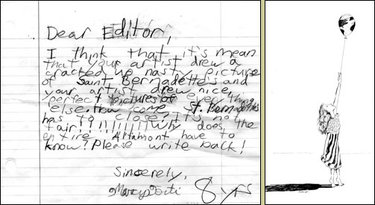 Dear Editor,
I think that it's mean
that your artist drew a
cracked up nasty picture
of Saint Bernadette's and
your artist drew nice,
perfect pictures of everything
else. How come St. Bernadette's
has to close? It's not
fair!!!!!!!!!! Why does the
entire Altamont have to
know? Please write back!
Sincerely,
8 yrs